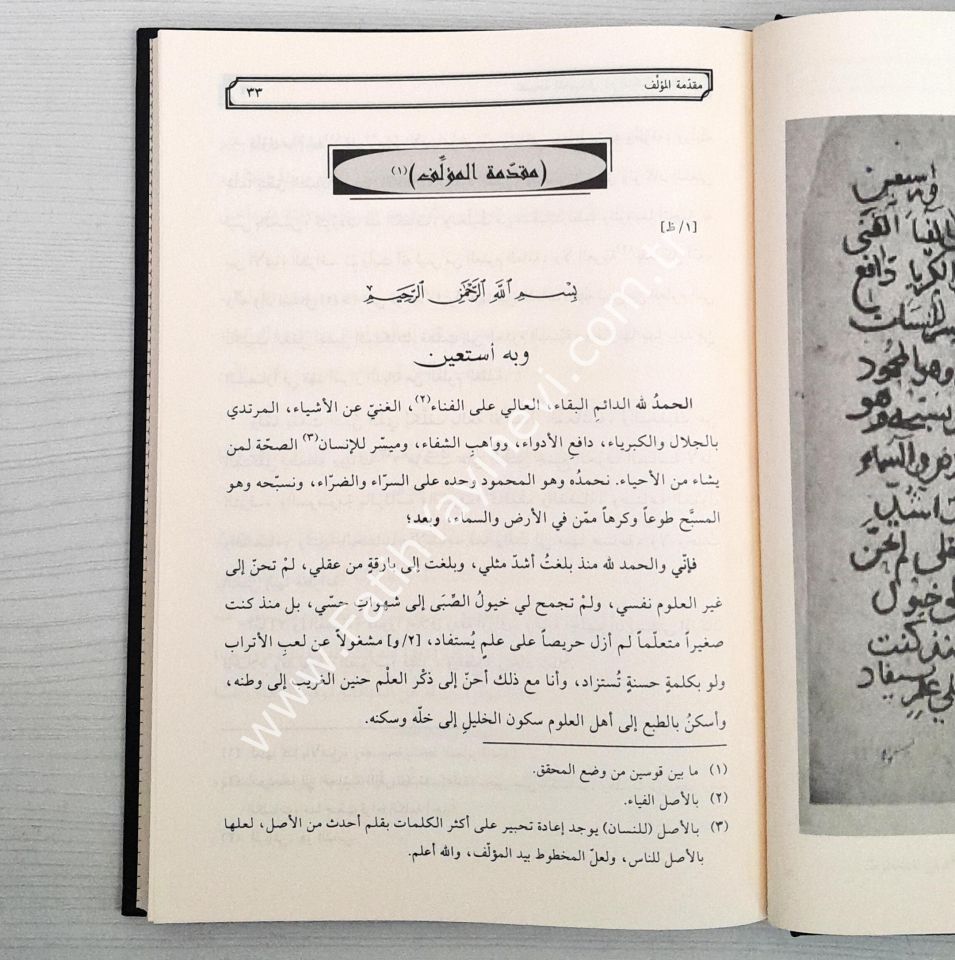 مقدّمة المؤلّف
٣٣
(مقدّمة المؤلِّف)(١)
[١/ظ]
بِسْمِ اللَّهِ الرَّحْمَٰنِ الرَّحِيمِ
وبه أستعين
الحمدُ لله الدائمِ البقاء، العالي على الفناء(٢)، الغنيّ عن الأشياء، المرتدي
بالجلال والكبرياء، دافعِ الأدواء، وواهبِ الشفاء، وميسّر للإنسان(٣) الصحّة لمن
يشاء من الأحياء. نحمدُه وهو المحمود وحده على السرّاء والضرّاء، ونسبّحه وهو
المسبَّح طوعاً وكرهاً ممّن في الأرض والسماء، وبعد؛
فإنّي والحمد لله منذ بلغتُ أشدّ مثلي، وبلغت إلى بارقةٍ من عقلي، لمْ تحنّ إلى
غير العلوم نفسي، ولمْ تجمح لي خيولُ الصِّبَى إلى شهواتِ حسّي، بل منذ كنت
صغيراً متعلّماً لم أزل حريصاً على علمٍ يُستفاد، [٢/و] مشغولاً عن لعبِ الأتراب
ولو بكلمةٍ حسنةٍ تُستزاد، وأنا مع ذلك أحنّ إلى ذكْر العلْم حنين الغريب إلى وطنه،
وأسكنُ بالطبع إلى أهل العلوم سكون الخليل إلى خلّه وسكنه.
(١) ما بين قوسين من وضع المحقق.
(٢) بالأصل الفياء.
(٣) بالأصل (للنسان) يوجد إعادة تحبير على أكثر الكلمات بقلم أحدث من الأصل، لعلها
بالأصل للناس، ولعلّ المخطوط بيد المؤلّف، والله أعلم.
www.FatihYayinevi.com.tr